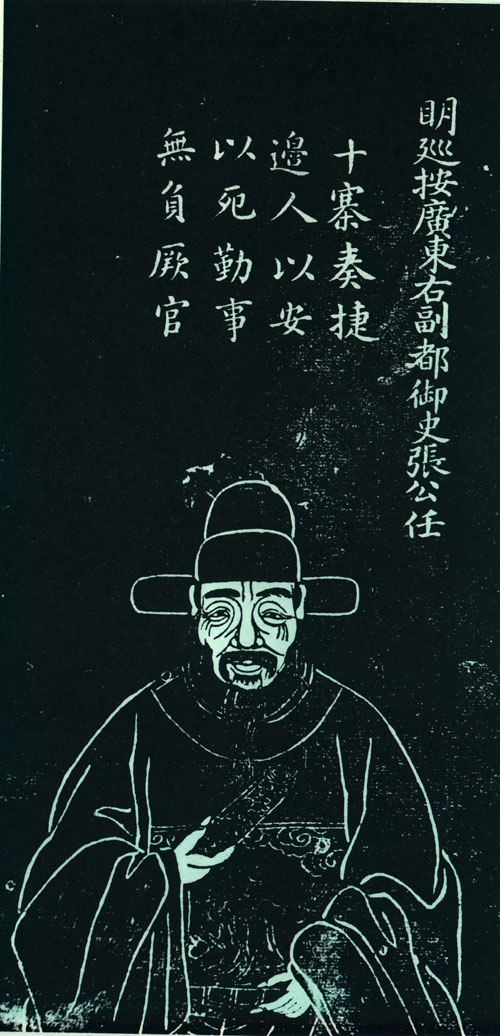 明巡按廣東右副都御史張公任
十寨奏捷
邊人以安
以死勤事
無負厥官